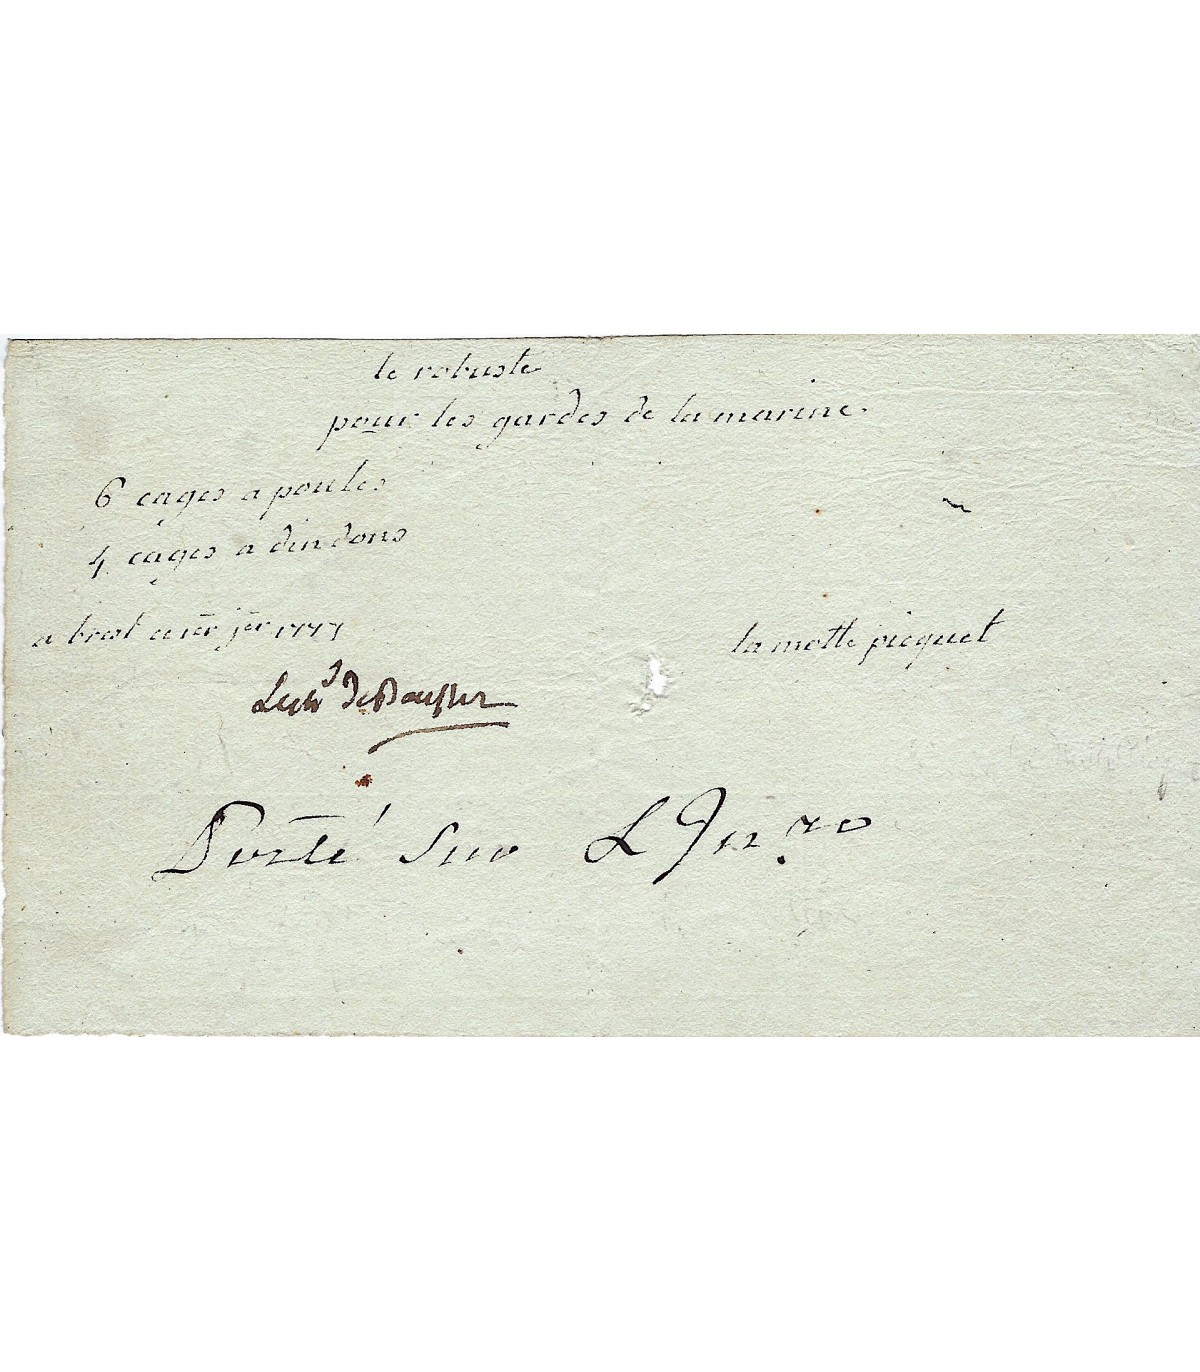 le robuste
pour les gardes de la marine.
6 cages a poules
4 cages a dindons
a brest ce 1er jer 1777
la motte picquet
Porté sur L